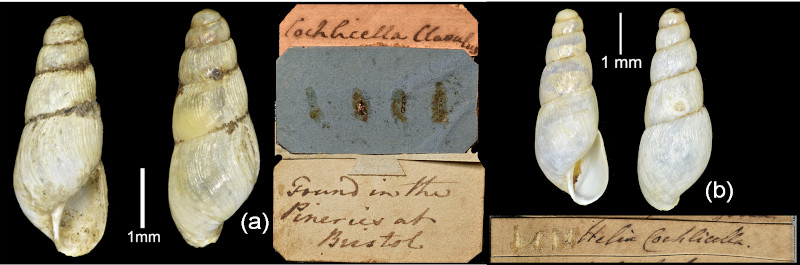 Cochlicella Clavulus
1mm
(a)
Found in the
Pineries at
Bristol
1 mm
(b)
Helix Cochlicella.